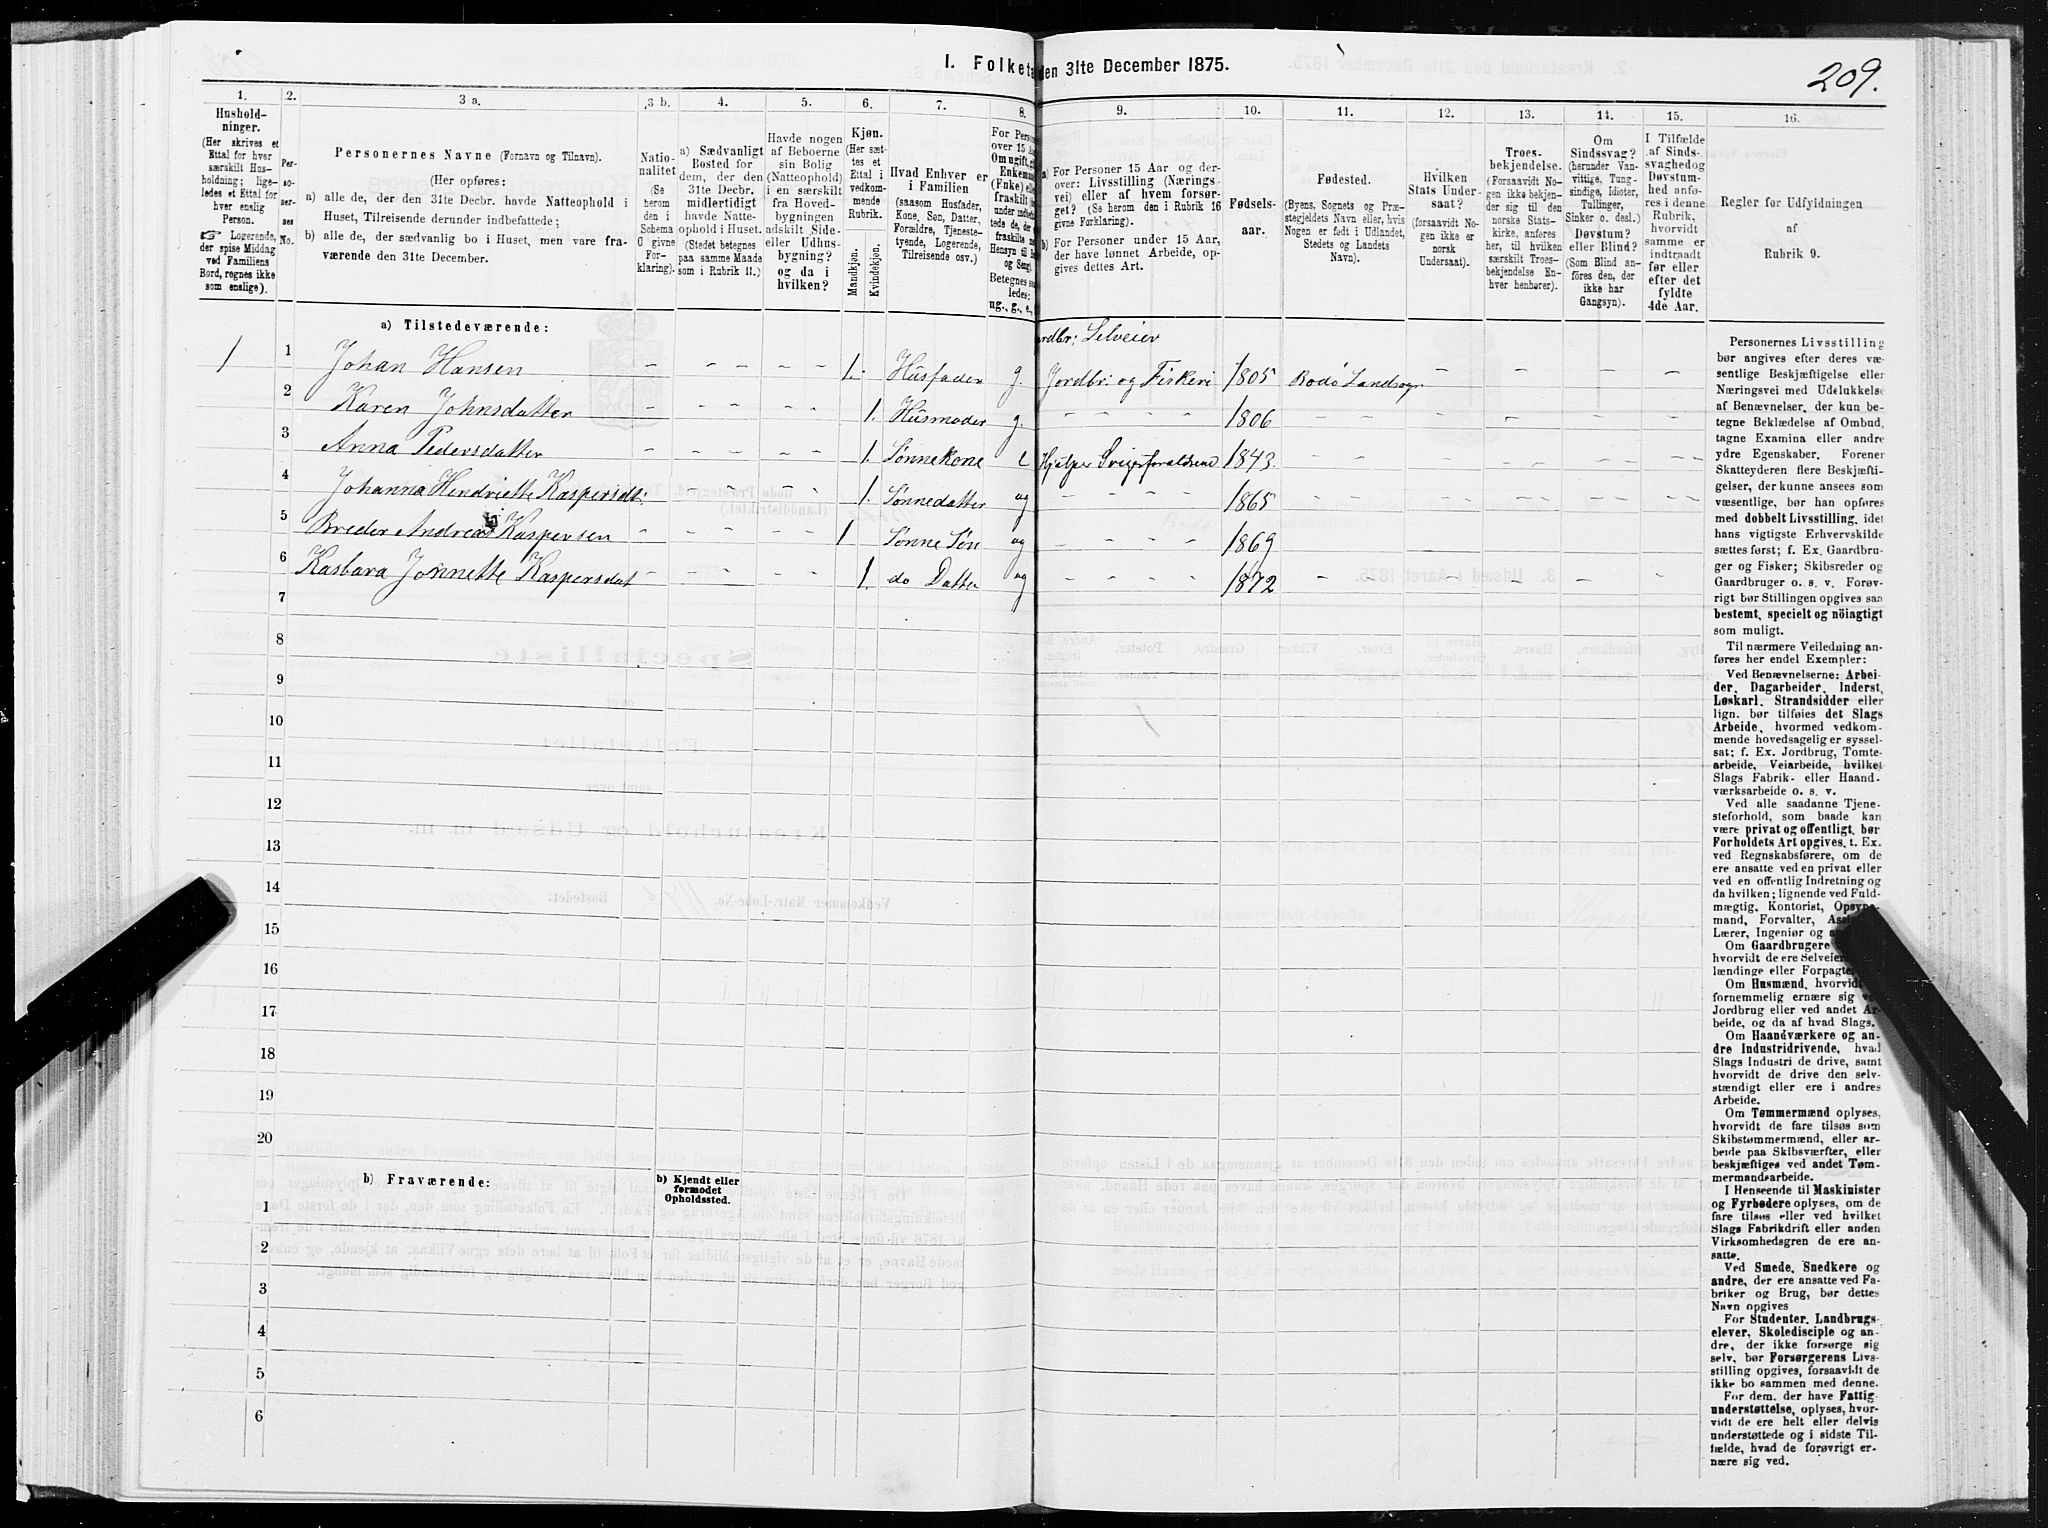 I. Folketæ
den 31te December 1875.
209.
1.
2.
3 a.
3 b.
4.
5.
6.
7.
8.
9.
10.
11.
12.
13.
14.
15.
16.
Hushold-
ninger.
(Her skrives et
Ettal for hver
særskilt Hus-
holdning; lige-
ledes et Ettal for
hver enslig
Person.
☞ Logerende,
der spise Middag
ved Familiens
Bord, regnes ikke
som enslige).
Per-
so-
ner-
nes
No.
Personernes Navne (Fornavn og Tilnavn).
(Her opføres:
a) alle de, der den 31te Decbr. havde Natteophold i
Huset, Tilreisende derunder indbefattede;
b) alle de, der sædvanlig bo i Huset, men vare fra-
værende den 31te December.
Natio-
nalitet
(Se
herom
den i
Schema
O givne
For-
klaring).
a) Sædvanligt
Bosted for
dem, der den
31te Decbr.
midlertidigt
havde Natte-
ophold i Huset.
(Stedet betegnes
paa samme Maade
som i Rubrik 11.)
Havde nogen
af Beboerne
sin Bolig
(Natteophold)
i en særskilt
fra Hoved-
bygningen
adskilt Side-
eller Udhus-
bygning?
og da i
hvilken?
Kjøn.
(Her sæt-
tes et
Ettal i
vedkom-
mende
Rubrik.
Mandkjøn.
Kvindekjøn.
Hvad Enhver er
i Familien
(saasom Husfader,
Kone, Søn, Datter,
Forældre, Tjeneste-
tyende, Logerende,
Tilreisende osv.)
For Perso
over 15 A
Om ugift, g
Enkeman
(Enke) el
fraskilt
under indb
tede de, de
fraskilte
Hensyn til B
og Seng).
Betegnes sa
ledes:
ug., g., e.,
a) For Personer 15 Aar og der-
over: Livsstilling (Nærings-
vei) eller af hvem forsør-
get? (Se herom den i Rubrik 16
givne Forklaring.)
b) For Personer under 15 Aar,
der have lønnet Arbeide, op-
gives dettes Art.
Fødsels-
aar.
Fødested.
(Byens, Sognets og Præ-
stegjeldets Navn eller, hvis
Nogen er født i Udlandet,
Stedets og Landets
Navn).
Hvilken
Stats Under-
saat?
(forsaavidt No-
gen ikke er
norsk
Undersaat).
Troes-
bekjendelse.
(Forsaavidt No-
gen ikke bekjen-
der sig til den
norske Stats-
kirke, anføres
her, til hvilken
særskilt Troes-
bekjendelse En-
hver henhører).
Om
Sindssvag?
(herunder Van-
vittige, Tung-
sindige, Idioter,
Tullinger,
Sinker o. desl.)
Døvstum?
eller Blind?
(Som Blind an-
føres den, der
ikke har
Gangsyn).
I Tilfælde
af Sinds-
svaghed og
Døvstum-
hed anfø-
res i denne
Rubrik,
hvorvidt
samme er
indtraadt
før eller
efter det
fyldte
4de Aar.
Regler for Udfyldningen
af
Rubrik 9.
a) Tilstedeværende:
Jordbr; Selveier
1 1 Johan Hansen 1. Husfader g. Jordbr: og Fiskeri 1805 Bodø Landsogn
2 Karen Johnsdatter 1. Husmoder g. 1806
3 Anna Pedersdatter 1. Sønnekone e Hjælper Svigerforældrene 1843.
4 Johanna Hendriette Kaspersdt: 1. Sønnedatter ug 1865
5 Breder Andreas Kaspersen 1 Sønne Søn ug 1869
6 Kasbara Jonnette Kaspersdat 1. do Datter ug 1872
7
8
9
10
11
12
13
14
15
16
17
18
19
20
b) Fraværende:
b) Kjendt eller
formodet
Opholdssted.
1
2
3
4
5
6
Personernes Livsstilling
bør angives efter deres væ-
sentlige Beskjæftigelse eller
Næringsvei med Udelukkelse
af Benævnelser, der kun be-
tegne Beklædelse af Ombud,
tagne Examina eller andre
ydre Egenskaber. Forener
Skatteyderen flere Beskjæfti-
gelser, der kunne ansees som
væsentlige, bør han opføres
med dobbelt Livsstilling, idet
hans vigtigste Erhvervskilde
sættes først; f. Ex. Gaardbru-
ger og Fisker; Skibsreder og
Gaardbruger o. s. v. Forøv-
rigt bør Stillingen opgives saa
bestemt, specielt og nöiagtigt
som muligt.
Til nærmere Veiledning an-
føres her endel Exempler:
Ved Benævnelserne: Arbei-
der, Dagarbeider, Inderst,
Løskarl, Strandsidder eller
lign. bør tilføies det Slags
Arbeide, hvormed vedkom-
mende hovedsagelig er syssel-
sat; f. Ex. Jordbrug, Tomte-
arbeide, Veiarbeide, hvilket
Slags Fabrik- eller Haand-
værksarbeide o. s. v.
Ved alle saadanne Tjene-
steforhold, som baade kan
være privat og offentligt, bør
Forholdets Art opgives, t. Ex.
ved Regnskabsførere, om de
ere ansatte ved en privat eller
ved en offentlig Indretning og
da hvilken; lignende ved Fuld-
mægtig, Kontorist, Opsyns-
mand, Forvalter, Assis
Lærer, Ingeniør og a
Om Gaardbrugere
hvorvidt de ere Selveier
lændinge eller Forpagte
Om Husmænd, hvorvidt
fornemmelig ernære sig ve
Jordbrug eller ved andet Ar-
beide, og da af hvad Slags.
Om Haandværkere og an-
dre Industridrivende, hvad
Slags Industri de drive, samt
hvorvidt de drive den selv-
stændigt eller ere i andres
Arbeide.
Om Tømmermænd oplyses,
hvorvidt de fare tilsøs som
Skibstømmermænd, eller ar-
beide paa Skibsværfter, eller
beskjæftiges ved andet Tøm-
mermandsarbeide.
I Henseende til Maskinister
og Fyrbødere oplyses, om de
fare tilsøs eller ved hvilket
Slags Fabrikdrift eller anden
Virksomhedsgren de ere an-
satte.
Ved Smede, Snedkere og
andre, der ere ansatte ved Fa-
briker og Brug, bør dettes
Navn opgives
For Studenter, Landbrugs-
elever, Skoledisciple og an-
dre, der ikke forsørge sig
selv, bør Forsørgerens Livs-
stilling opgives, forsaavidt de
ikke bo sammen med denne.
For dem, der have Fattig-
understøttelse, oplyses, hvor-
vidt de ere helt eller delvis
understøttede og i sidste Til-
fælde, hvad de forøvrigt er-
nære sig ved.